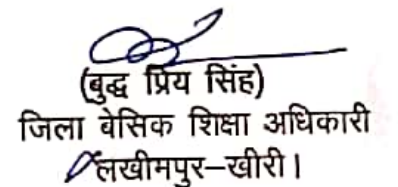 (बुद्ध प्रिय सिंह)
जिला बेसिक शिक्षा अधिकारी
लखीमपुर–खीरी।